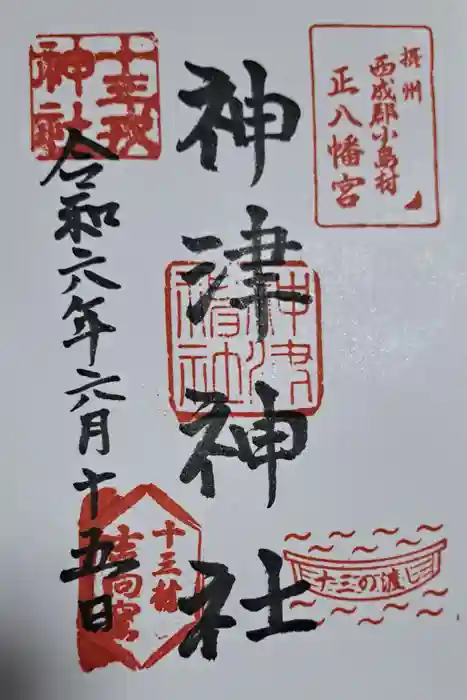 摂州
西成郡小島村
正八幡宮
神津神社
神津神社
十三の渡し
十三戎
神社
令和六年六月十五日
十三村